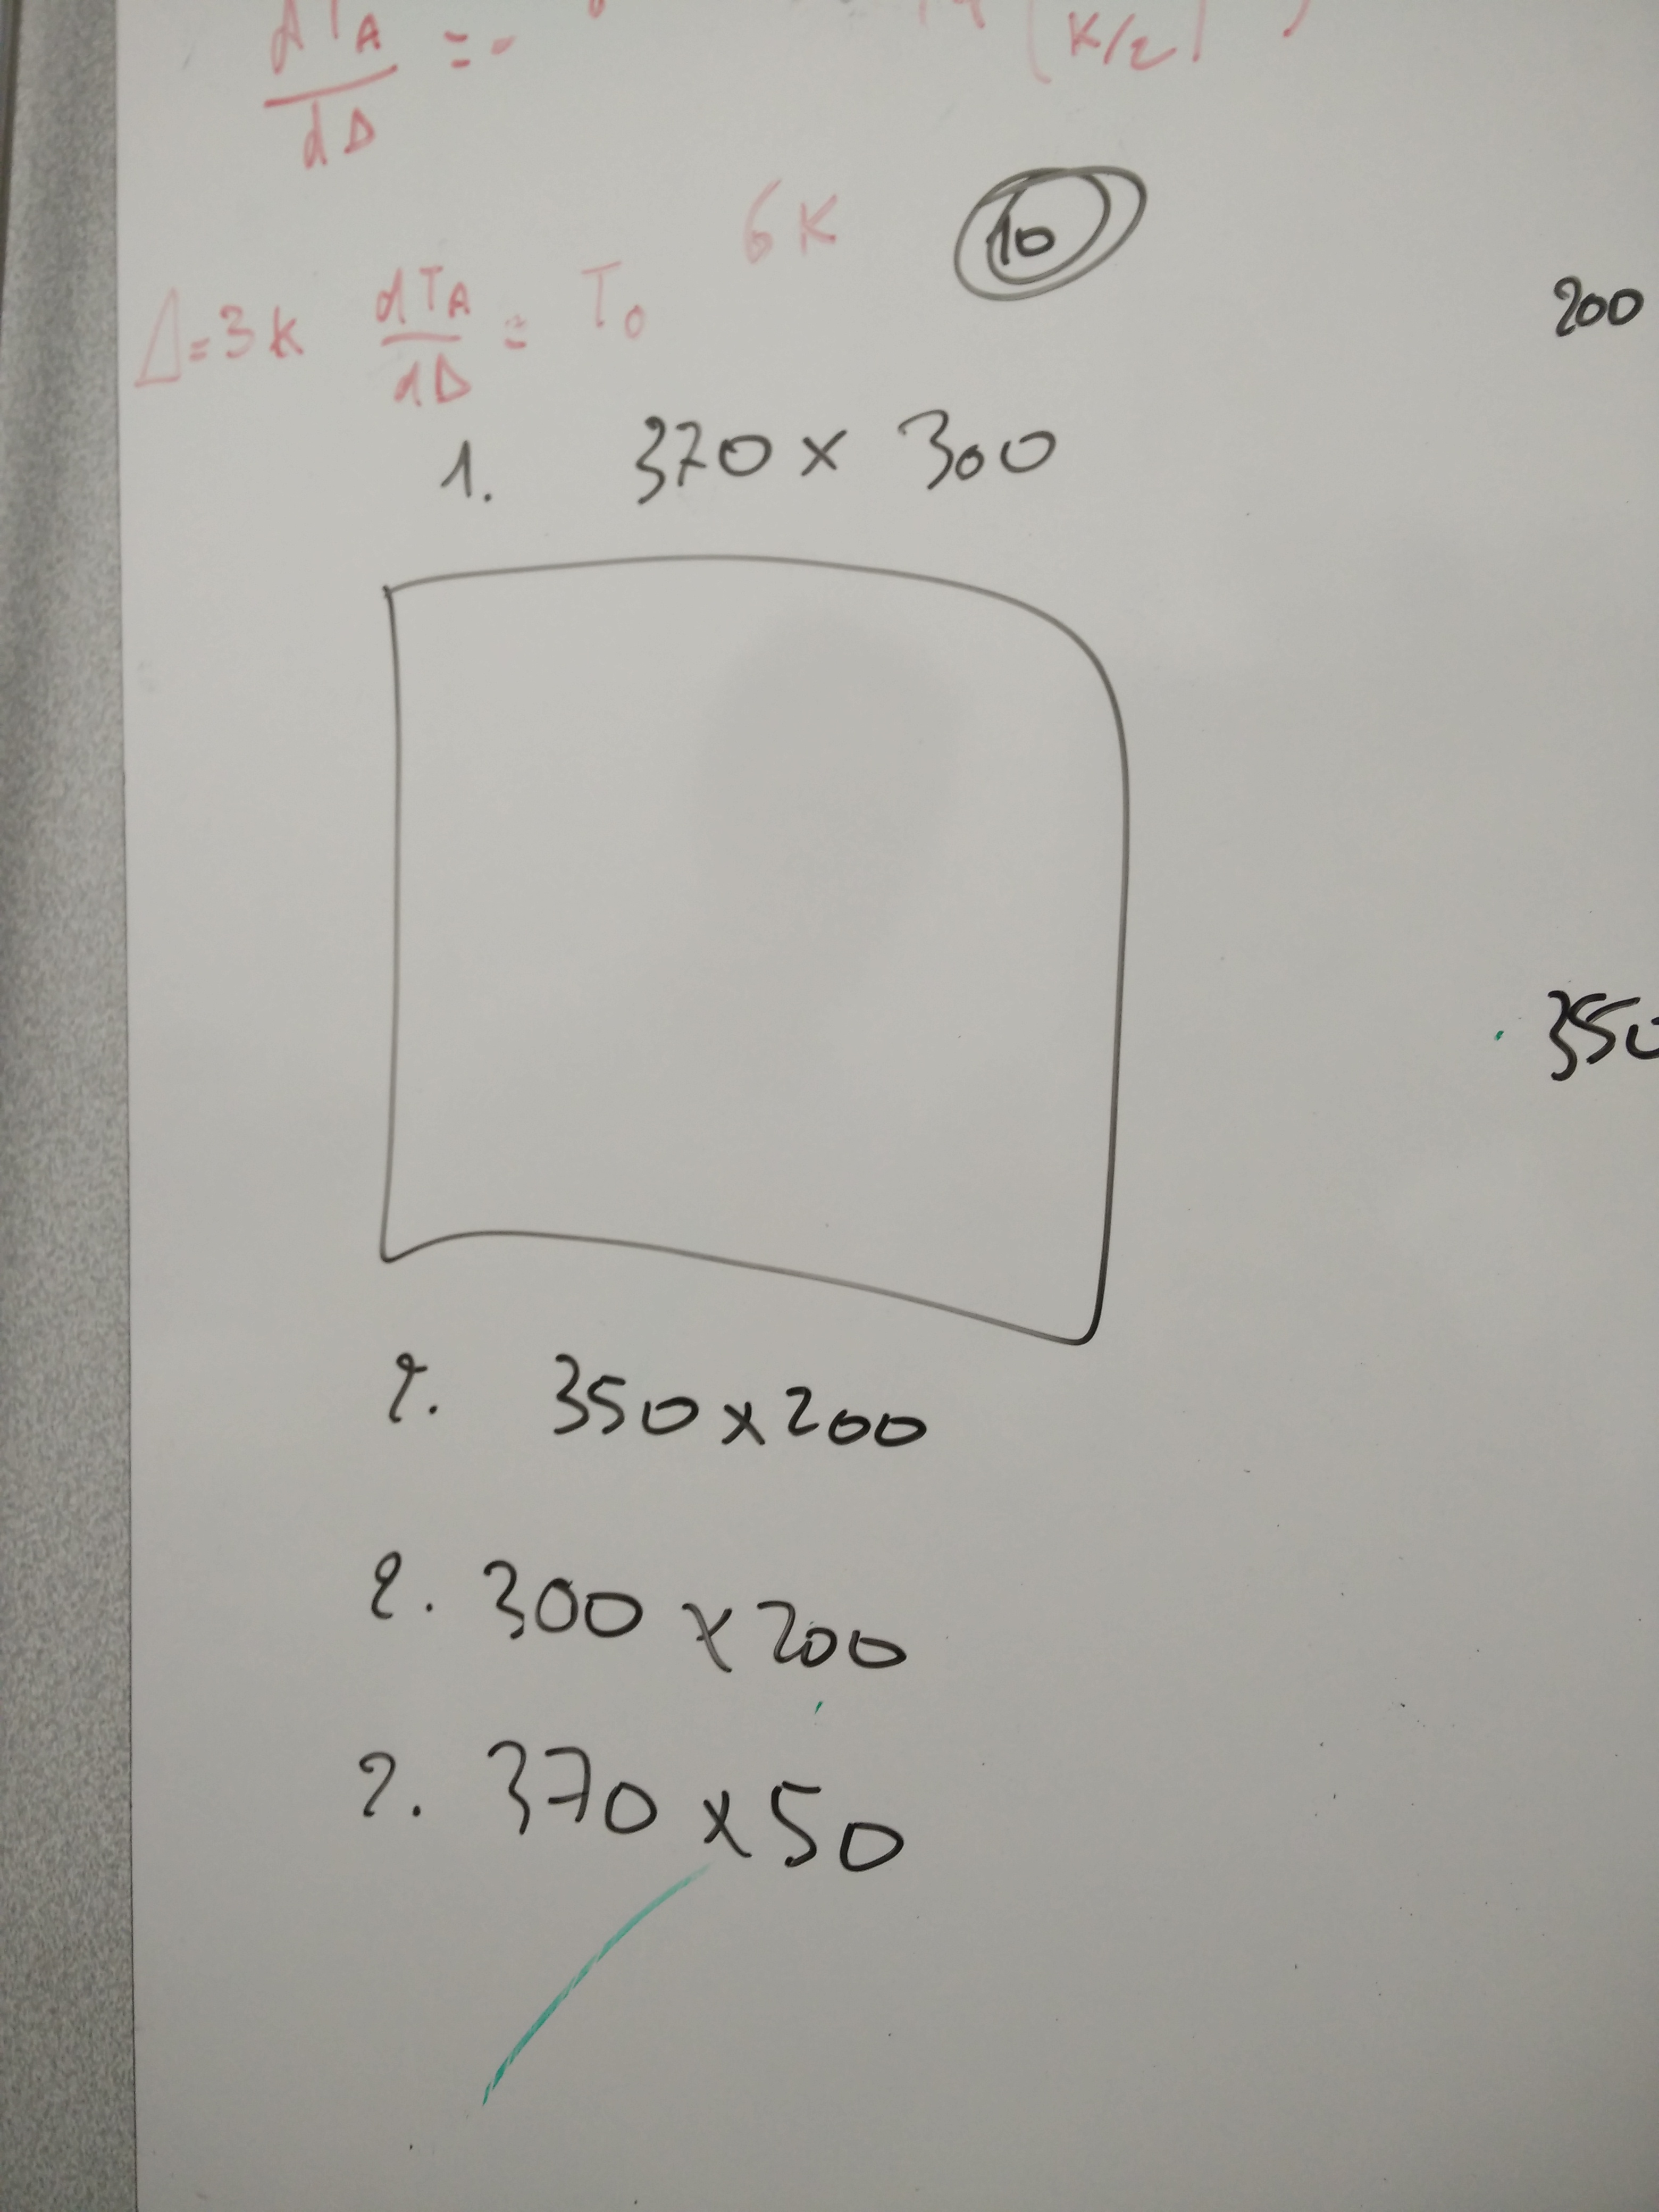 dTA
— = -
dΔ
K/2
6K
10
200
Δ=3K dTA/dΔ = T0
1. 370 x 300
350
2. 350 x 200
2. 300 x 200
2. 370 x 50